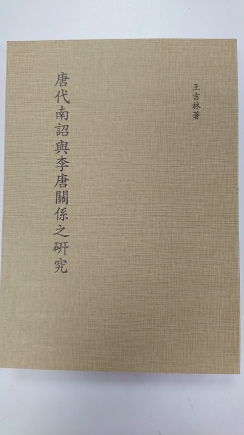 唐代南詔與李唐關係之研究
王吉林著